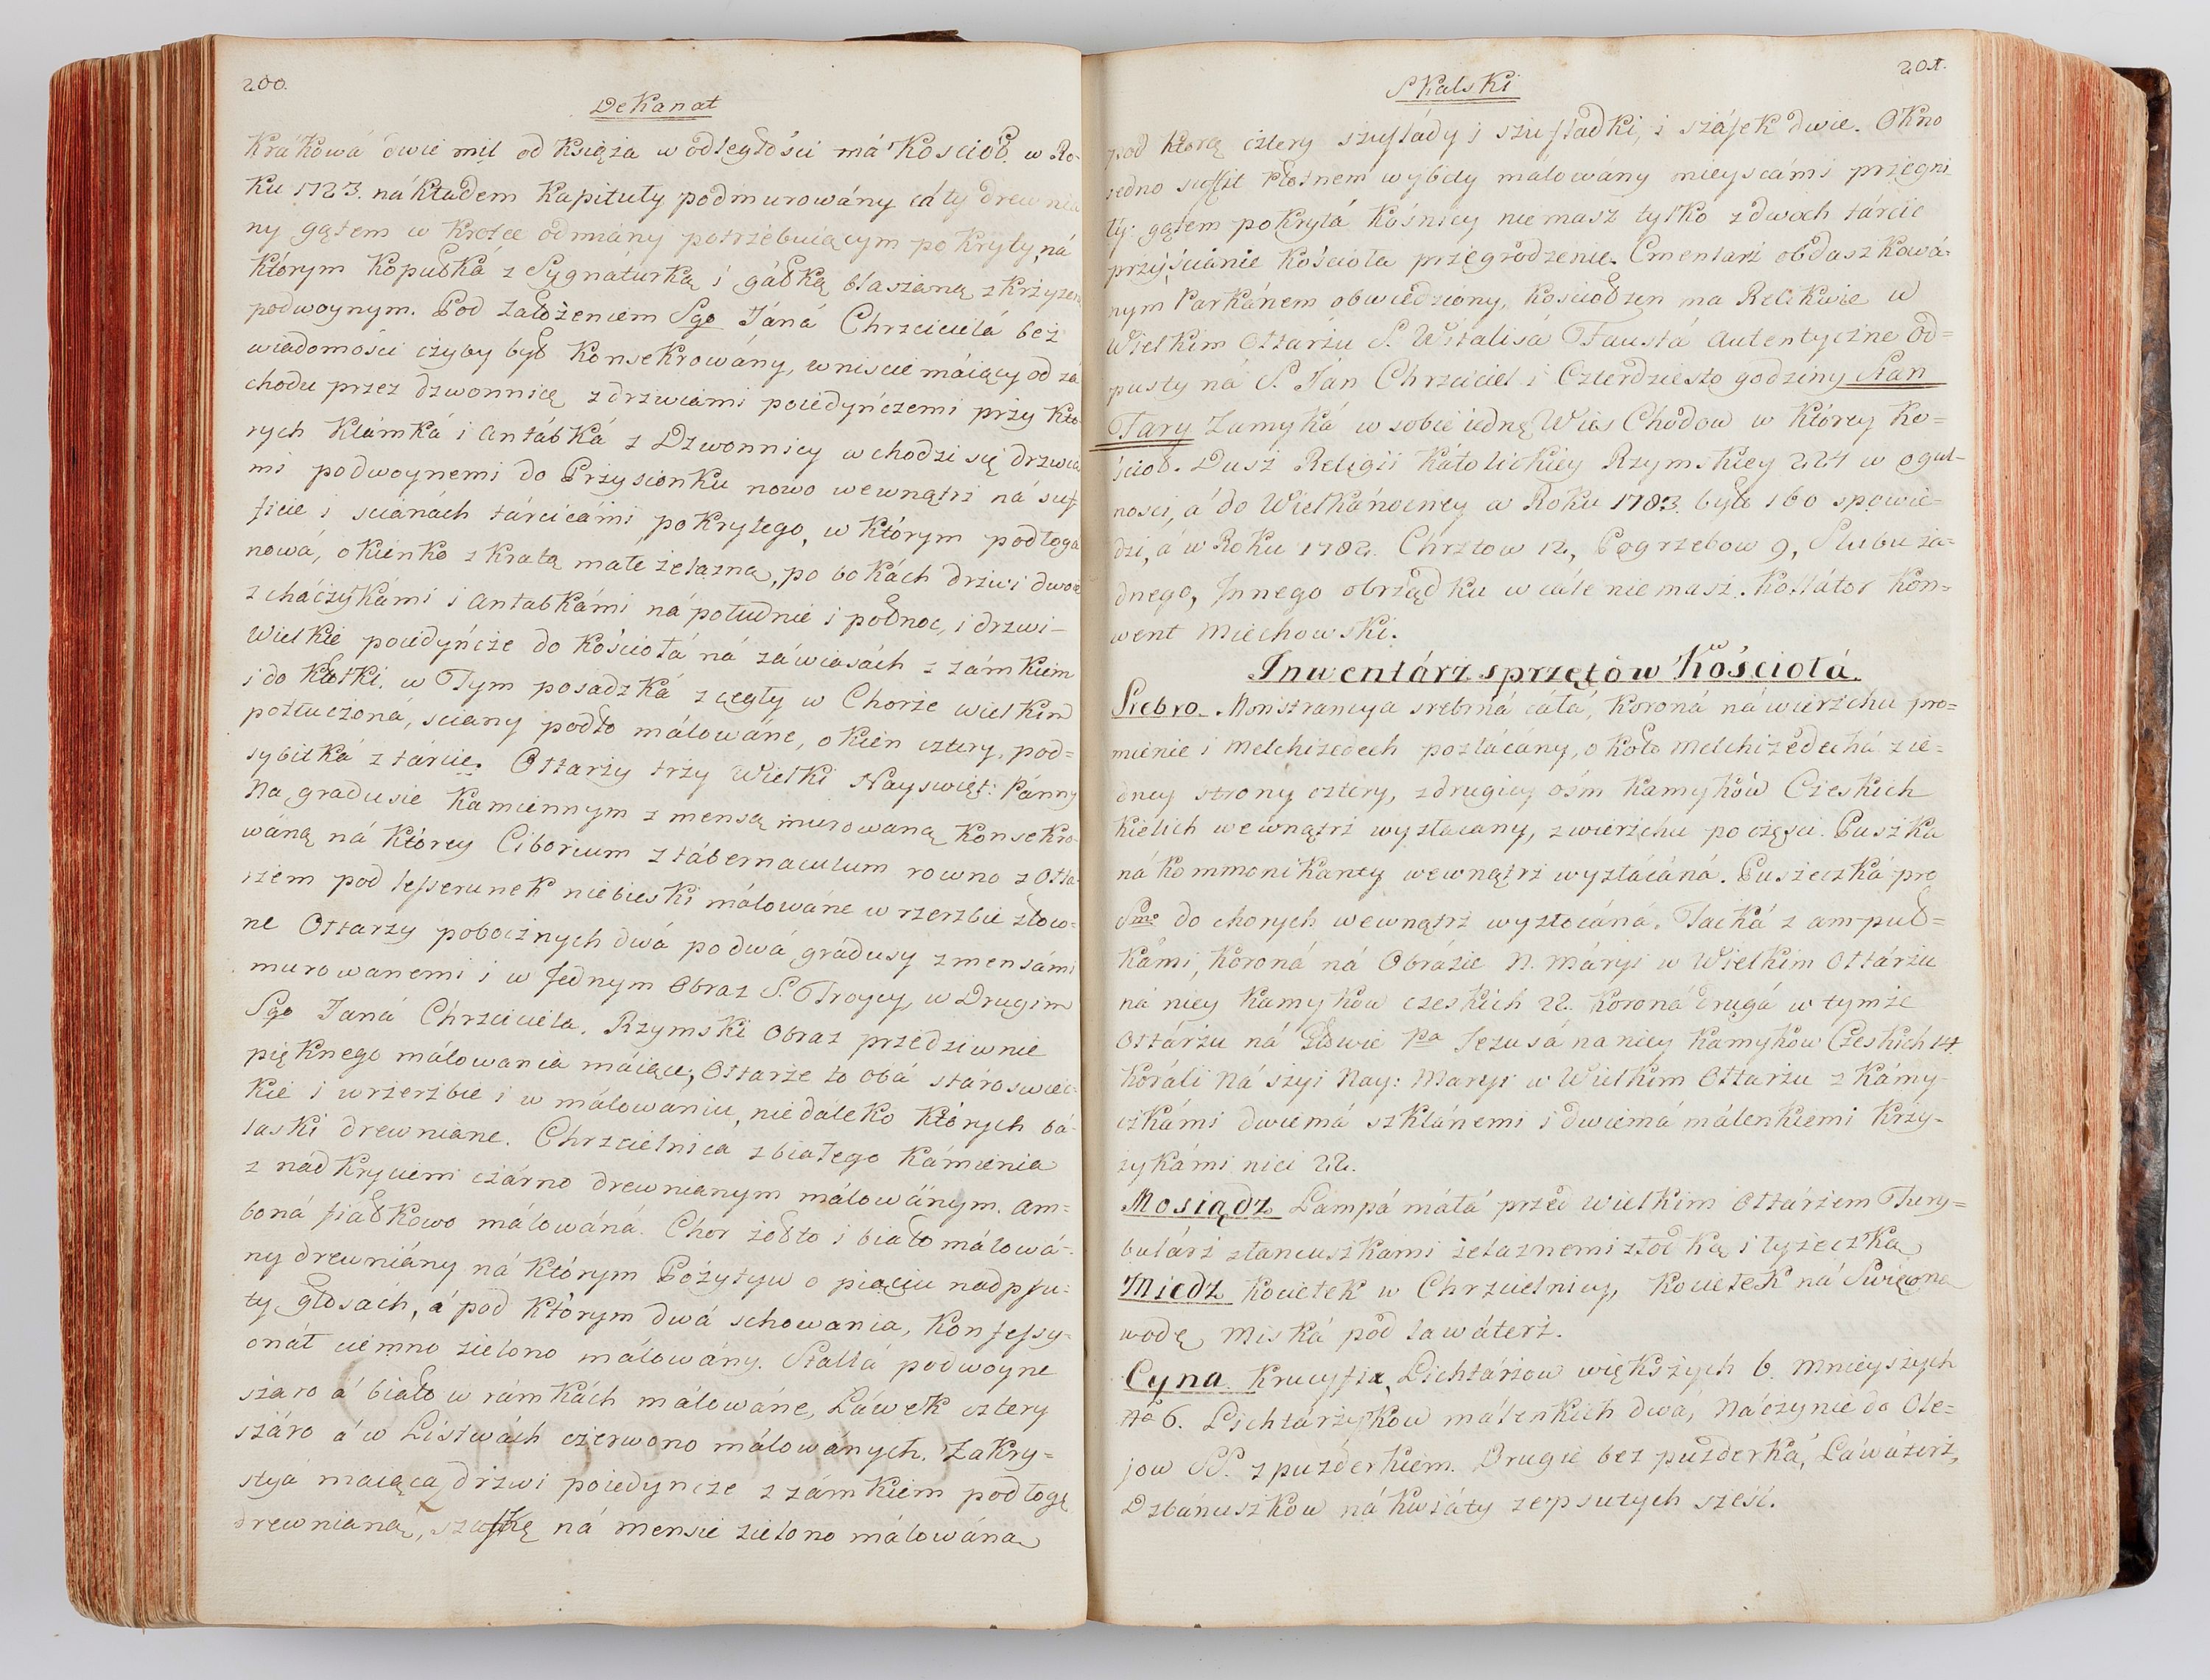 200.
Dekanat
Krákowá dwie mil od Księża w odległości má Kościoł. w Ro-
ku 1723. nákładem Kapituły podmurowány cáły drewnia
ny gątem w krotce odmiány potrzebuiącym pokryty, ná
którym Kopułká z Sygnáturką i gáłką blaszaną z krzyżem
podwoynym. Pod Założeniem Sgo Jáná Chrzcicielá bez
wiadomości czyby był Konsekrowány, wniście máiący od zá
chodu przez dzwonnicę z drzwiámi poiedyńczemi przy któ-
rych klámká i Antábká z Dzwonnicy wchodzi się drzwia
mi podwoynemi do Przysionku nowo wewnątrz ná suf
ficie i scianách tárcicámi pokrytego, w którym podłoga
nowá, okienko z kratą małe żelazną, po bokách drzwi dwoie
z cháczykámi i Antabkámi ná południe i połnoc, i drzwi-
Wielkie poiedyńcze do Kościołá ná záwiasách z zámkiem
i do kłotki. w Tym posadzká z cegły w Chorze wielkim
potłuczoná, sciany podło málowáne, okien cztery, pod=
sybitká z tárcic. Ołtarzy trzy Wielki Nayswięt: Pánny
Na gradusie Kamiennym z mensą murowaną Konsekro-
wáną ná którey Ciborium z tábernaculum rowno z Ołta-
rzem pod lesserunek niebieski málowáne w rzerzbie złoco-
ne Ołtarzy pobocznych dwá po dwá grádusy z mensámi
murowanemi i w Jednym Obraz S. Troycy, w Drugim
Sgo Janá Chrzciciela. Rzymski Obraz przedziwnie
pięknego málowania máiące, Ołtarze to obá stároswiec-
kie i w rzerzbie i w málowániu, niedáleko których bá-
laski drewniane. Chrzcielnica z białego Kámienia
z nádkryciem czárno drewnianym málowánym. Am=
boná fiałkowo málowáná. Chor żółto i biało málowá-
ny drewniány ná którym Pozytyw o piąciu nadpsu-
tych głosách, á pod którym dwá schowania, Konfessy-
onáł ciemno zielono málowány. Stallá podwoyne
szaro á biało w rámkách málowáne, Láwek cztery
száro á w Listwách czerwono málowánych. Zakry=
styá maiąca drzwi poiedyncze z zámkiem podłogę
drewnianą, szafkę ná mensie zielono málowána
Skalski
201.
pod którą cztery szuflády i szufladki, i szafek dwie. Okno
jedno suffit płotnem wybity málowány mieyscámi przegni
ły. gątem pokrytá Kośnicy niemasz tylko z dwoch tárcic
przy ścianie kościoła przegrodzenie. Cmentarz obdaszkowá-
nym Parkánem obwiedziony, Kościoł ten ma Relikwie w
Wielkim Ołtarzu S. Witalisá Faustá Autentyczne Od=
pusty ná S. Ján Chrzciciel i Czterdziesto godziny Stan
Fary Zamyká w sobie iednę Wieś Chodow w którey Ko=
ścioł. Dusz Religii Kátolickiey Rzymskiey 224 w ogul-
ności, á do Wielkánocney w Roku 1783. było 160 spowie-
dzi, á w Roku 1782. Chrztow 12, Pogrzebow 9, Slubu ża-
dnego, Innego obrządku wcale niemasz. Kollátor Kon-
went Miechowski.
Inwentárz sprzętów Kościołá.
Srebro. Monstrancya srebrná cáłá, Koroná ná wierzchu pro=
mienie i Melchizedech pozłácány, o koło Melchizedechá z ie=
dney strony cztery, z drugiey óśm Kamyków Czeskich
Kielich wewnątrz wyzłacany, z wierzchu po części. Puszka
ná kommonikanty wewnątrz wyzłácáná. Puszeczká pro
Smo do chorych wewnątrz wyzłocáná. Tacká z ampuł=
kámi, Koroná ná Obrázie N. Máryi w Wielkim Ołtárzu
ná niey Kamyków czeskich 22. Koroná drugá w tymże
Ołtárzu ná Głowie Pa Jezusá na niey Kámyków Czeskich 14.
Koráli ná szyi Nay: Maryi w Wielkim Ołtarzu z Kámy-
czkámi dwiemá szklánemi i dwiemá málenkiemi krzy-
żykámi nici 22.
Mosiądz Lampá máłá przed wielkim Ołtárzem Tury=
bulárz złancuszkami żelaznemi złodką i łyżeczką
Miedz Kociełek w Chrzcielnicy, Kociełek ná Swięconą
wodę Miská pod lawáterz.
Cyna. Krucyfix, Lichtárzow większych 6. mnieyszych
No 6. Lichtárzykow málenkich dwá, Náczynie do Ole=
jow SS. z puzderkiem. Drugie bez puzderká, Láwáterz,
Dzbánuszkow ná kwiáty zepsutych sześć.